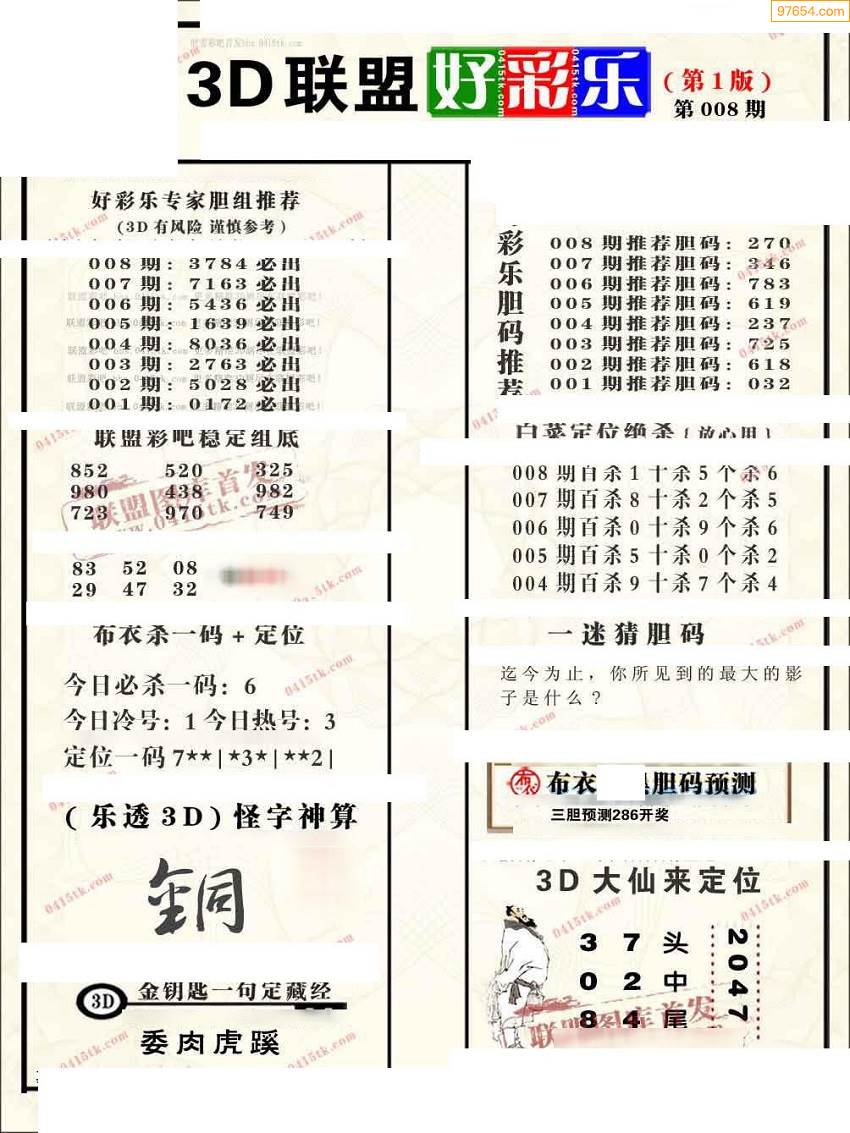 97654.com
3D联盟好彩乐
(第1版)
第008期
好彩乐专家胆组推荐
(3D有风险 谨慎参考)
008期:3784必出
007期:7163必出
006期:5436必出
005期:1639必出
004期:8036必出
003期:2763必出
002期:5028必出
001期:0172必出
联盟彩吧稳定组底
852 520 325
980 438 982
723 970 749
83 52 08
29 47 32
布衣杀一码+定位
今日必杀一码:6
今日冷号:1今日热号:3
定位一码7**|*3*|**2|
(乐透3D)怪字神算
銅
3D 金钥匙一句定藏经
委肉虎蹊
彩乐胆码推荐
008期推荐胆码:270
007期推荐胆码:346
006期推荐胆码:783
005期推荐胆码:619
004期推荐胆码:237
003期推荐胆码:725
002期推荐胆码:618
001期推荐胆码:032
白菜定位绝杀(放心用)
008期百杀1十杀5个杀6
007期百杀8十杀2个杀5
006期百杀0十杀9个杀6
005期百杀5十杀0个杀2
004期百杀9十杀7个杀4
一迷猜胆码
迄今为止，你所见到的最大的影
子是什么?
布衣
胆码预测
三胆预测286开奖
3D大仙来定位
3 7 头
0 2 中
8 4 尾
2047
联盟图库首发
www.0415tk.com
0415tk.com